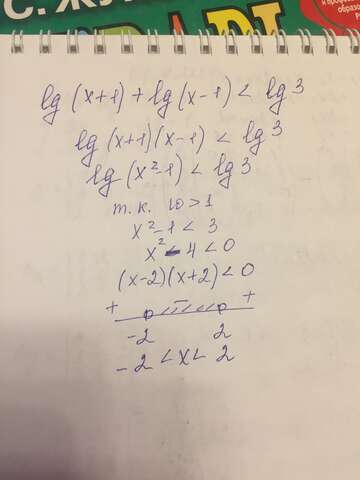 С. ЖУ
lg (x+1) + lg (x-1) < lg 3
lg (x+1)(x-1) < lg 3
lg (x²-1) < lg 3
т.к. 10 > 1
x²-1 < 3
x² - 4 < 0
(x-2)(x+2) < 0
+ - +
-2 2
-2 < x < 2